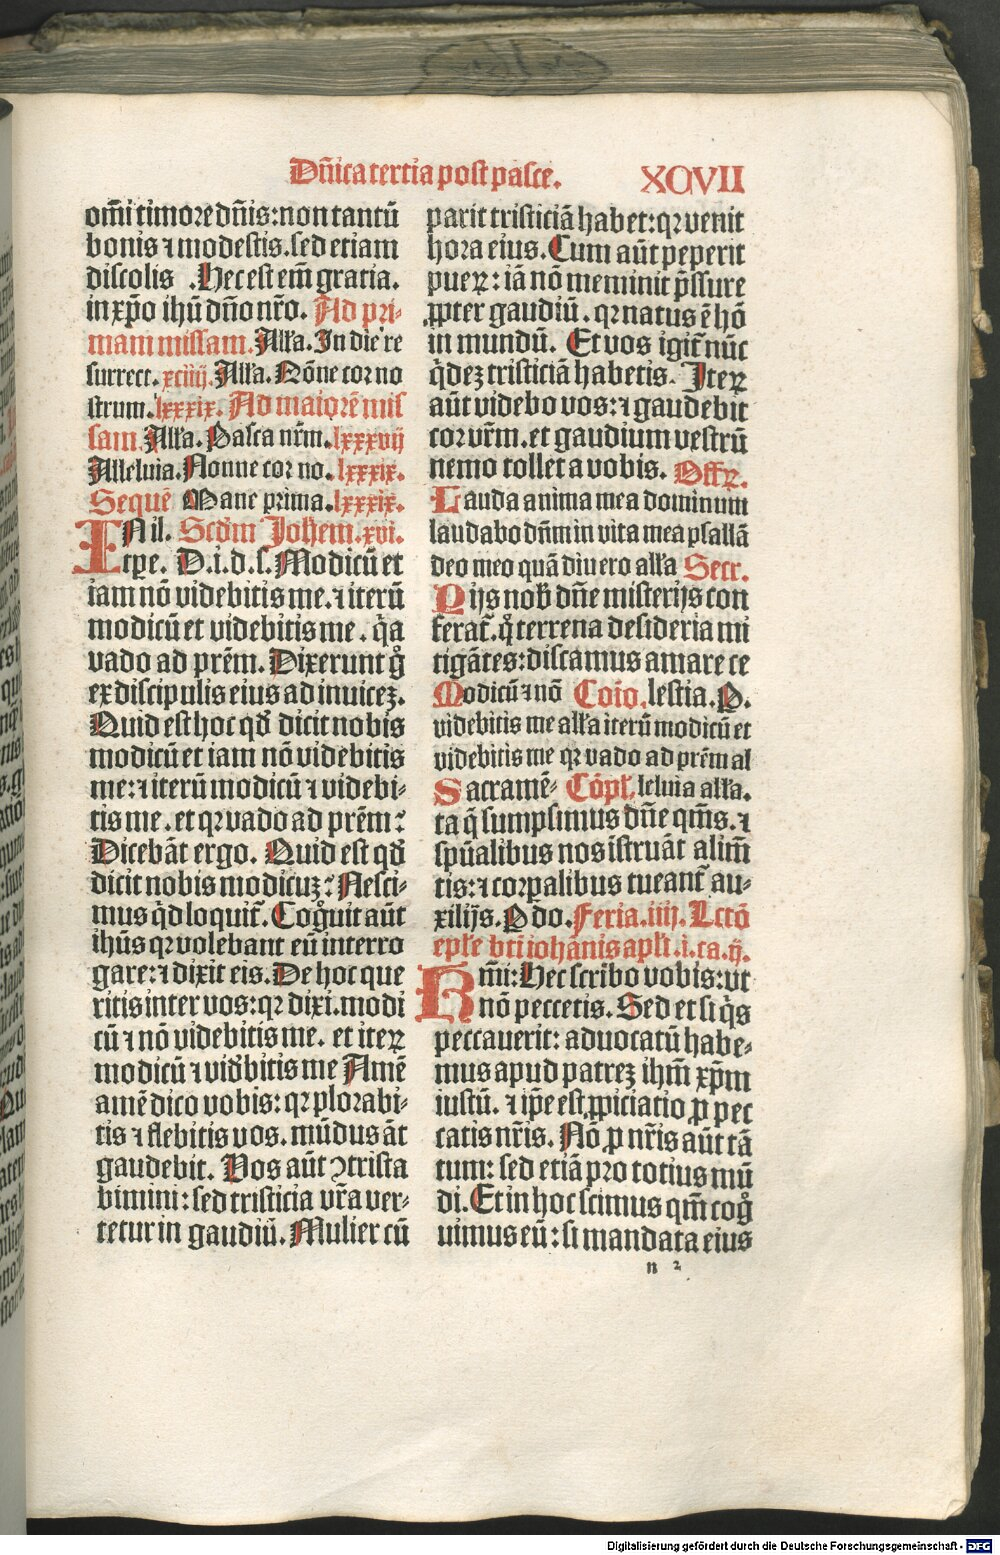 Dn̄ica tertia post pasce. XCVII
om̄i timore dn̄is: non tantū
bonis ⁊ modestis. sed etiam
discolis . Hec est em̄ gratia.
in xp̄o ihū dn̄o nr̄o. Ad pri-
mam missam. Alla. In die re
surrect. xciiij. Alla. Nōne cor no
strum. lxxxix. Ad maiorē mis
sam. Alla. Pasca nr̄m. lxxxvij
Alleluia. Nonne cor no. lxxxix.
Sequē Mane prima. lxxxix.
IN il. Scd̄m Johem. xvi.
tpe. D. i. d. s. Modicū et
iam nō videbitis me. ⁊ iterū
modicū et videbitis me. q̄a
vado ad prēm. Dixerunt g̊
ex discipulis eius ad inuicez.
Quid est hoc qd̄ dicit nobis
modicū et iam nō videbitis
me: ⁊ iterū modicū ⁊ videbi-
tis me. et qꝛ vado ad prēm?
Dicebāt ergo. Quid est qd̄
dicit nobis modicuz? Nesci-
mus q̇d loquit̄. Cog̊uit aūt
ihūs qꝛ volebant eū interro
gare: ⁊ dixit eis. De hoc que
ritis inter vos: qꝛ dixi. modi
cū ⁊ nō videbitis me. et iteꝝ
modicū ⁊ vid̄bitis me Amē
amē dico vobis: qꝛ plorabi-
tis ⁊ flebitis vos. mūdus āt
gaudebit. Vos aūt ꝯtrista
bimini: sed tristicia vr̄a ver-
tetur in gaudiū. Mulier cū
parit tristiciā habet: qꝛ venit
hora eius. Cum aūt peperit
pueꝝ: iā nō meminit p̄ssure
ꝓpter gaudiū. qꝛ natus ē hō
in mundū. Et vos igit̄ nūc
q̇dez tristiciā habetis. Iteꝝ
aūt videbo vos: ⁊ gaudebit
cor vr̄m. et gaudium vestrū
nemo tollet a vobis. Offꝝ.
Lauda anima mea dominum
laudabo dn̄m in vita mea psallā
deo meo quā diu ero alla Secr.
Pijs nob̄ dn̄e misterijs con
ferat̄. q̇ terrena desideria mi
tigātes: discamus amare ce
Modicū ⁊ nō Coīo. lestia. P.
videbitis me alla iterū modicū et
videbitis me qꝛ vado ad prēm al
Sacramē- Cōpl. leluia alla.
ta q̄ sumpsimus dn̄e qm̄s. ⁊
spūalibus nos īstruāt alim̄
tis: ⁊ corꝑalibus tueant̄ au-
xilijs. P do. Feria. iiij. Lctō
eple bti iohānis apli. i. ca. ij.
Km̄i: Hec scribo vobis: vt
nō peccetis. Sed et si q̇s
peccauerit: aduocatū habe-
mus apud patrez ihm̄ xp̄m
iustū. ⁊ ip̄e est ꝓpiciatio ꝓ pec
catis nr̄is. Nō ꝓ nr̄is aūt tā
tum: sed etiā pro totius mū
di. Et in hoc scimus qm̄ cog̊
uimus eū: si mandata eius
n 2
Digitalisierung gefördert durch die Deutsche Forschungsgemeinschaft - DFG